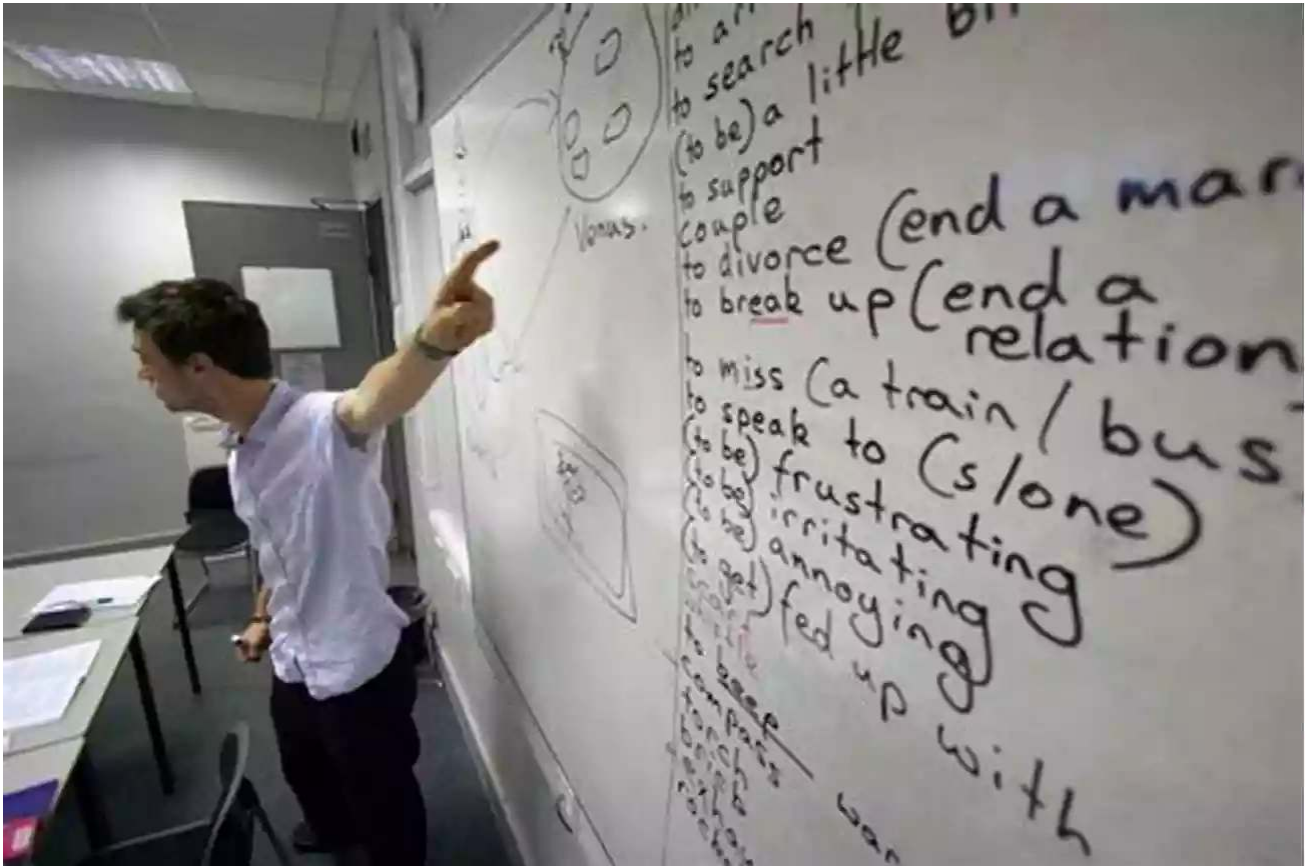 Venus.
to search
(to be) a little bit
to support
couple
to divorce (end a mar
to break up (end a
relation
to miss (a train / bus
to speak to (s/one)
(to be) frustrating
(to be) irritating
(to be) annoying
(to get) fed up with
to beep
compass
torch
brick